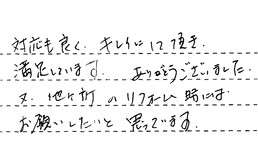 対応も良く、キレイにして頂き、
満足しています。 ありがとうございました。
又、他ヶ所のリフォーム時には
お願いしたいと思っています。